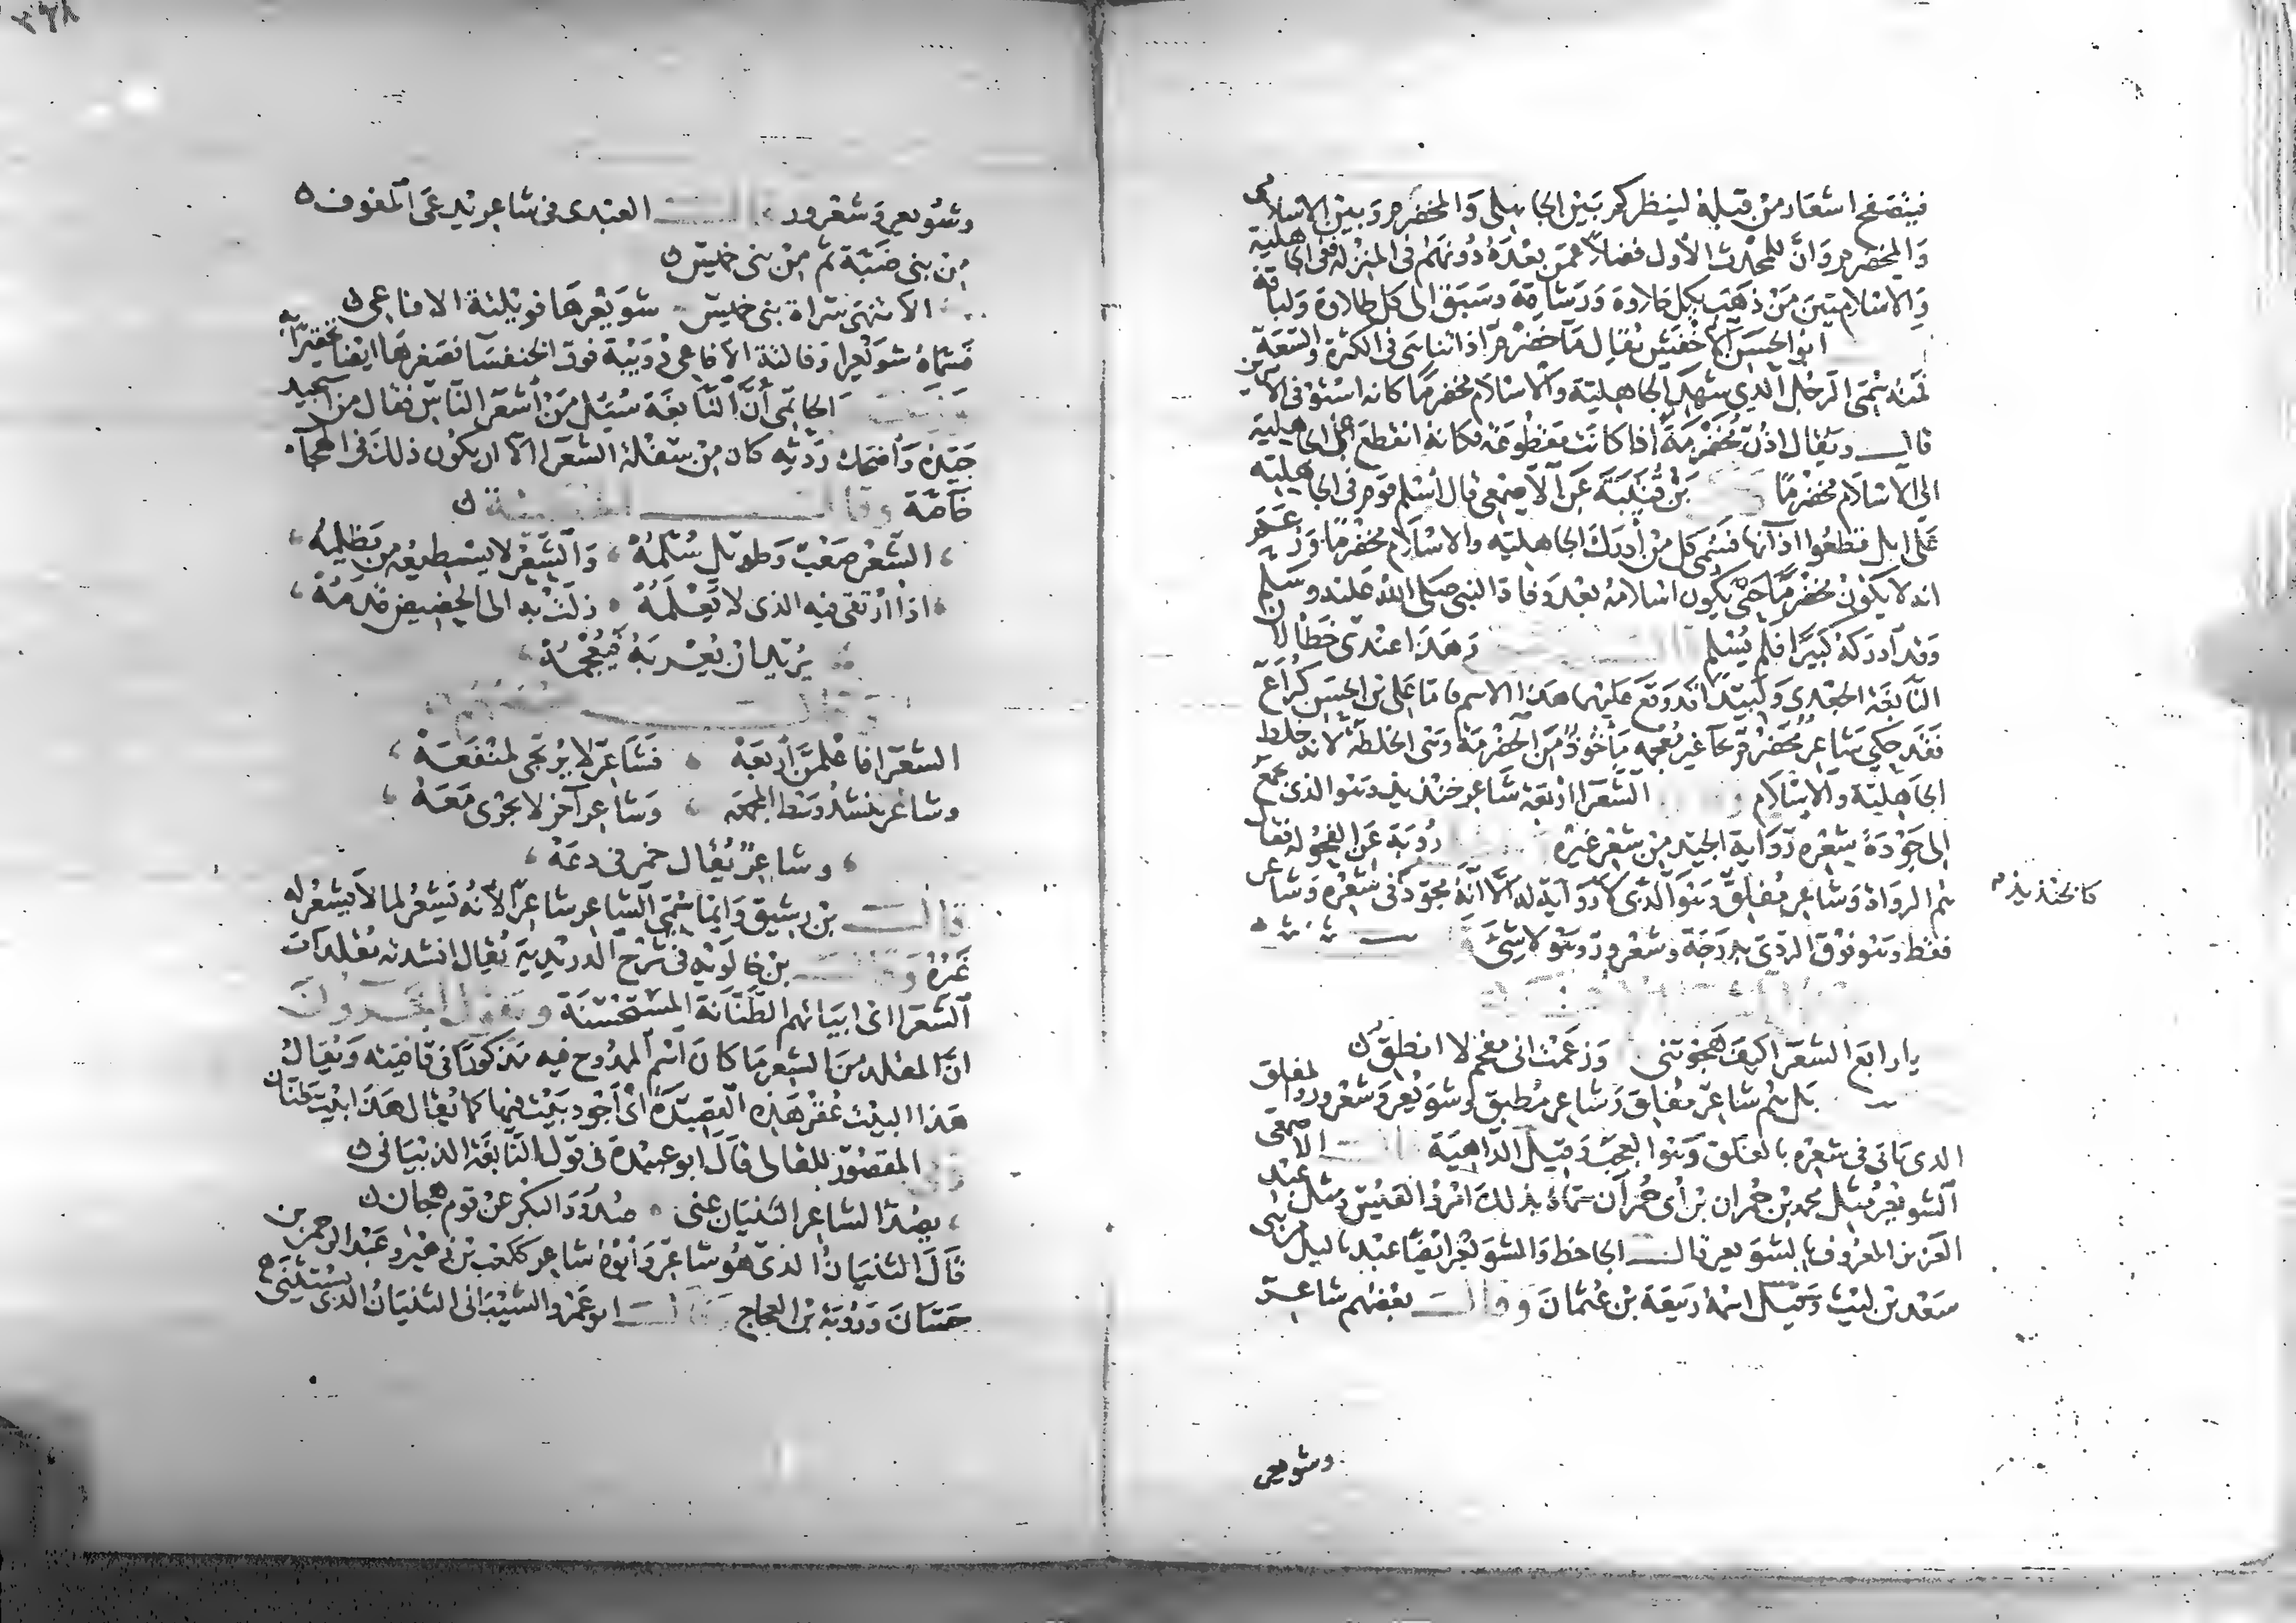 فيتصفح اشعار من قبله لينظر كم بين الجاهلى والمخضرم وبين الاسلامى
والمخضرم وانَّ للمحدث الأول فضلاً عمن بعده دونهم في المنزله ففي الجاهلية
والاسلاميين من ذهب بكل حلاوة ورشاقة وسبق الى كل طلاوة ولباقة
ابو الحسن الاخفش يُقال مآ خضرم اذا تناهى في الكثرة والسّعة
فمنه سُمّى الرجل الذي شهد الجاهلية والاسلام مخضرمًا كانه استوفى الامرين
قال ويقال اذن مُخضرمةً اذا كانت مقطوعة فكانه انقطع عن الجاهلية
الى الاسلام مخضرمًا بن قُتيبَة عن الاصمعي قال أسلم قوم في الجاهلية
على ابل قطعوا اذآنها فسُمى كل من أدرك الجاهلية والاسلام مخضرمًا وزعم
انه لا يكون مخضرمًا حتى يكون اسلامه بعد وفاة النبي صلى الله عليه وسلم
وقد أدركه كبيرًا فلم يُسلم وهذا عندى خطأ لان
النابغة الجعدى ولبيدًا قد وقع عليهما هذا الاسم فامّا على بن الحسن كُراع
فقد حكى شاعر مُحضرم بحآ غير مُعجمه مأخوذ من الحضرمة وهى الخلطة لانه خلط
الجاهلية والاسلام الشعرا اربعة شاعر خنذيذ وهو الذى يجمع
الى جَوْدة شعره رواية الجيد من شعر غيره رُوبة عن الفحوله فقال
هم الرواة وشاعر مُفلق وهو الذى لا رواية له الا أنه مجوّد في شعره وشاعر
كالخنذيذ
فقط وهو فوق الردى بدرجة وشعرور وهو لا شئ
يا رابع الشعرا كيف هجوتنى وزعمت انى مفحم لا انطق
بل هم شاعر مُفلق وشاعر مُطبق وشويعر وشعرور والمفلق
الذى يأتى في شعره بالفلق وهو العجب وقيل الداهية الاصمعى
الشويعر مثل محمد بن حُمران بن أبى حُمران سمّاه بذلك امرؤ القيس ومثل عبد
العزيز المعروف بالشويعر قال الجاحظ والشويعر ايضًا عبد ياليل من بنى
سعد بن ليث وقيل اسمه ربيعة بن عُثمان وقال بعضهم شاعر
وشويعر
وشويعر وشعرور العبدى في شاعر يدعى المفوف
من بني ضبّة ثم من بنى خميس
الا تنهى سراة بنى خميس شويعرها فويلية الافاعى
فسمّاه شويعرا وفالية الافاعى دُويبة فوق الخنفسآ فصغرها ايضا تحقيرا به
الحاتمى أنّ النابغة سُئل من أشعر الناس فقال من استجيد
جيّده وأضحك رديّه كان من سفلة الشعرا الا ان يكون ذلك في الهجآء
خاصّة وقال
الشعر صَعْب وطويل سُلّمُهْ والشعر لا يسطيعه من يظلمُهْ
اذا ارتقى فيه الذى لا يعْلمُهْ زلّت به الى الحضيض قدمُهْ
يُريد ان يُعربَهُ فيُعجمُهْ
وقال بعضهم
الشعرا فاعلمنّ أربعَهْ فشاعر لا يُرتجى لمنفعَهْ
وشاعر ينشد وسط المجمعه وشاعر آخر لا يجرى معَهْ
وشاعرٌ يُقال خمر في دعَهْ
قال بن رشيق وانما سُمّى الشاعر شاعرًا لأنه يَشعُر لما لا يشعُر له
غيرُهُ وقال بن خالويه في شرح الدريدية يُقال انشدته مُقلدات
الشعرا اى ابياتهم الطنّانة المستحسنة ويقول
انّ المقلد من الشعر ما كان اسم الممدوح فيه مذكورًا في قافيته ويُقال
هذا البيت عُقر هذه القصيدة أي أجود بيت فيها كما يُقال هذا بيت طنّان
المقصُور للقالى قال ابو عبيدة في قول النابغة الذبيانى
يصُدّ الشاعر الثنيان عنى صدُود البكر عن قوم هجان
قال الثنيانُ الذى هو شاعر وأبوه شاعر ككعب بن زهير وعبد الرحمن بن
حسّانَ ورُوبة بن العجاج وقال ابو عمرو الشيبانى الثنيانُ الذى يستثنى